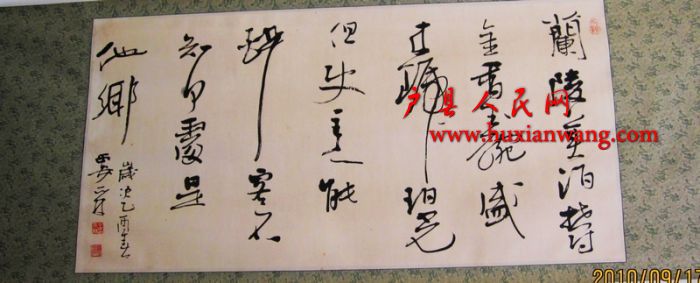 蘭陵美酒鬱
金香玉碗盛
来琥珀光
但使主人能
醉客不
知何處是
他鄉
歲次乙酉
户县人民网
www.huxianwang.com
2010/09/17